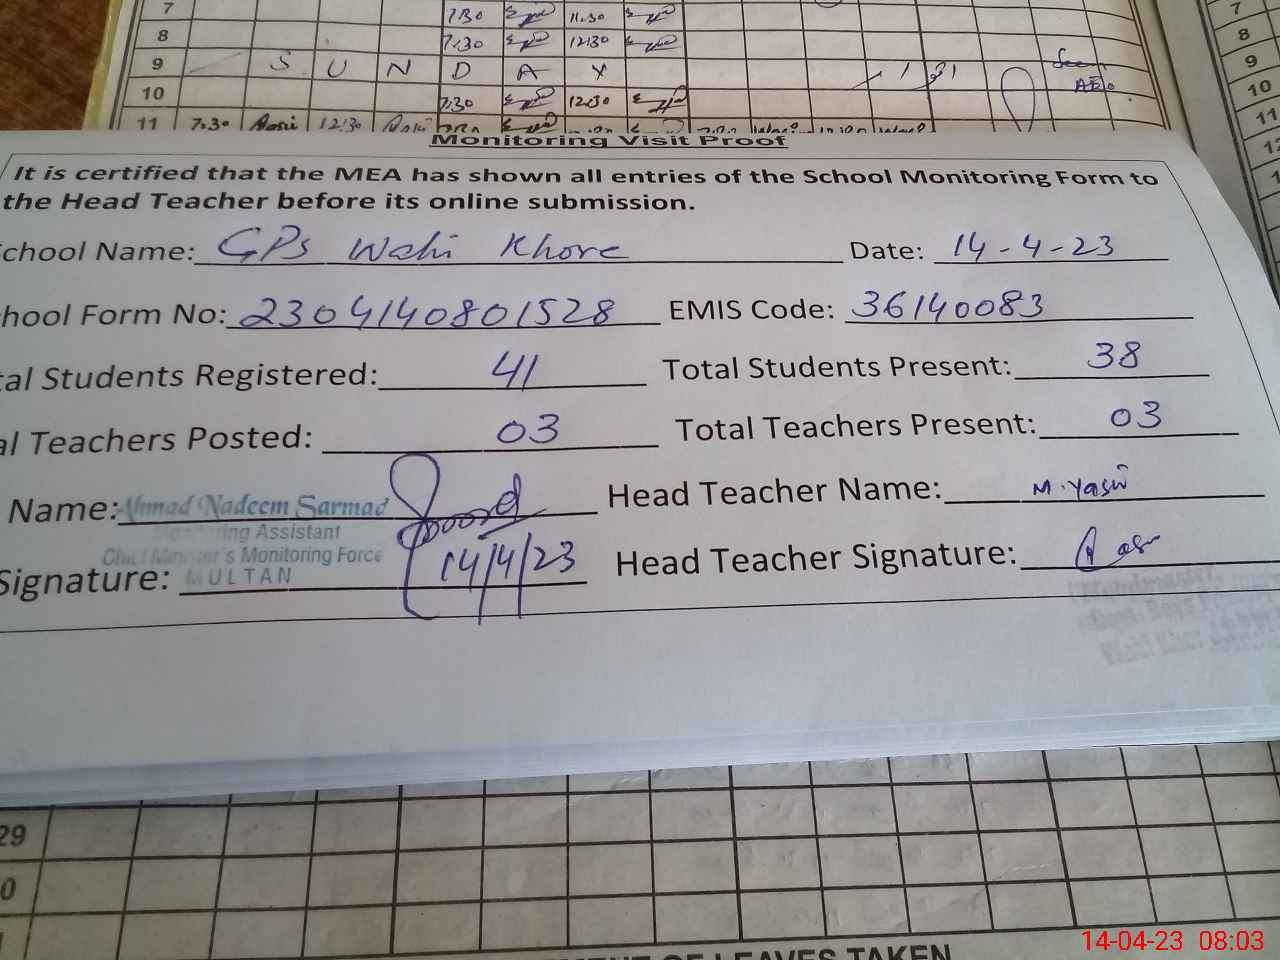 7 7.30 11.30 7
8 7.30 12.30 8
9 S U N D A Y 9
10 7.30 12.30 AEO 10
11 7.30 12.30 11
Monitoring Visit Proof
It is certified that the MEA has shown all entries of the School Monitoring Form to
the Head Teacher before its online submission.
chool Name: GPs Wahi Khore Date: 14-4-23
hool Form No: 2304140801528 EMIS Code: 36140083
tal Students Registered: 41 Total Students Present: 38
al Teachers Posted: 03 Total Teachers Present: 03
Name: Ahmad Nadeem Sarmad Head Teacher Name: M. Yasir
Monitoring Assistant
Chief Minister's Monitoring Force
Signature: MULTAN 14/4/23 Head Teacher Signature:
29
0
OF LEAVES TAKEN
14-04-23 08:03